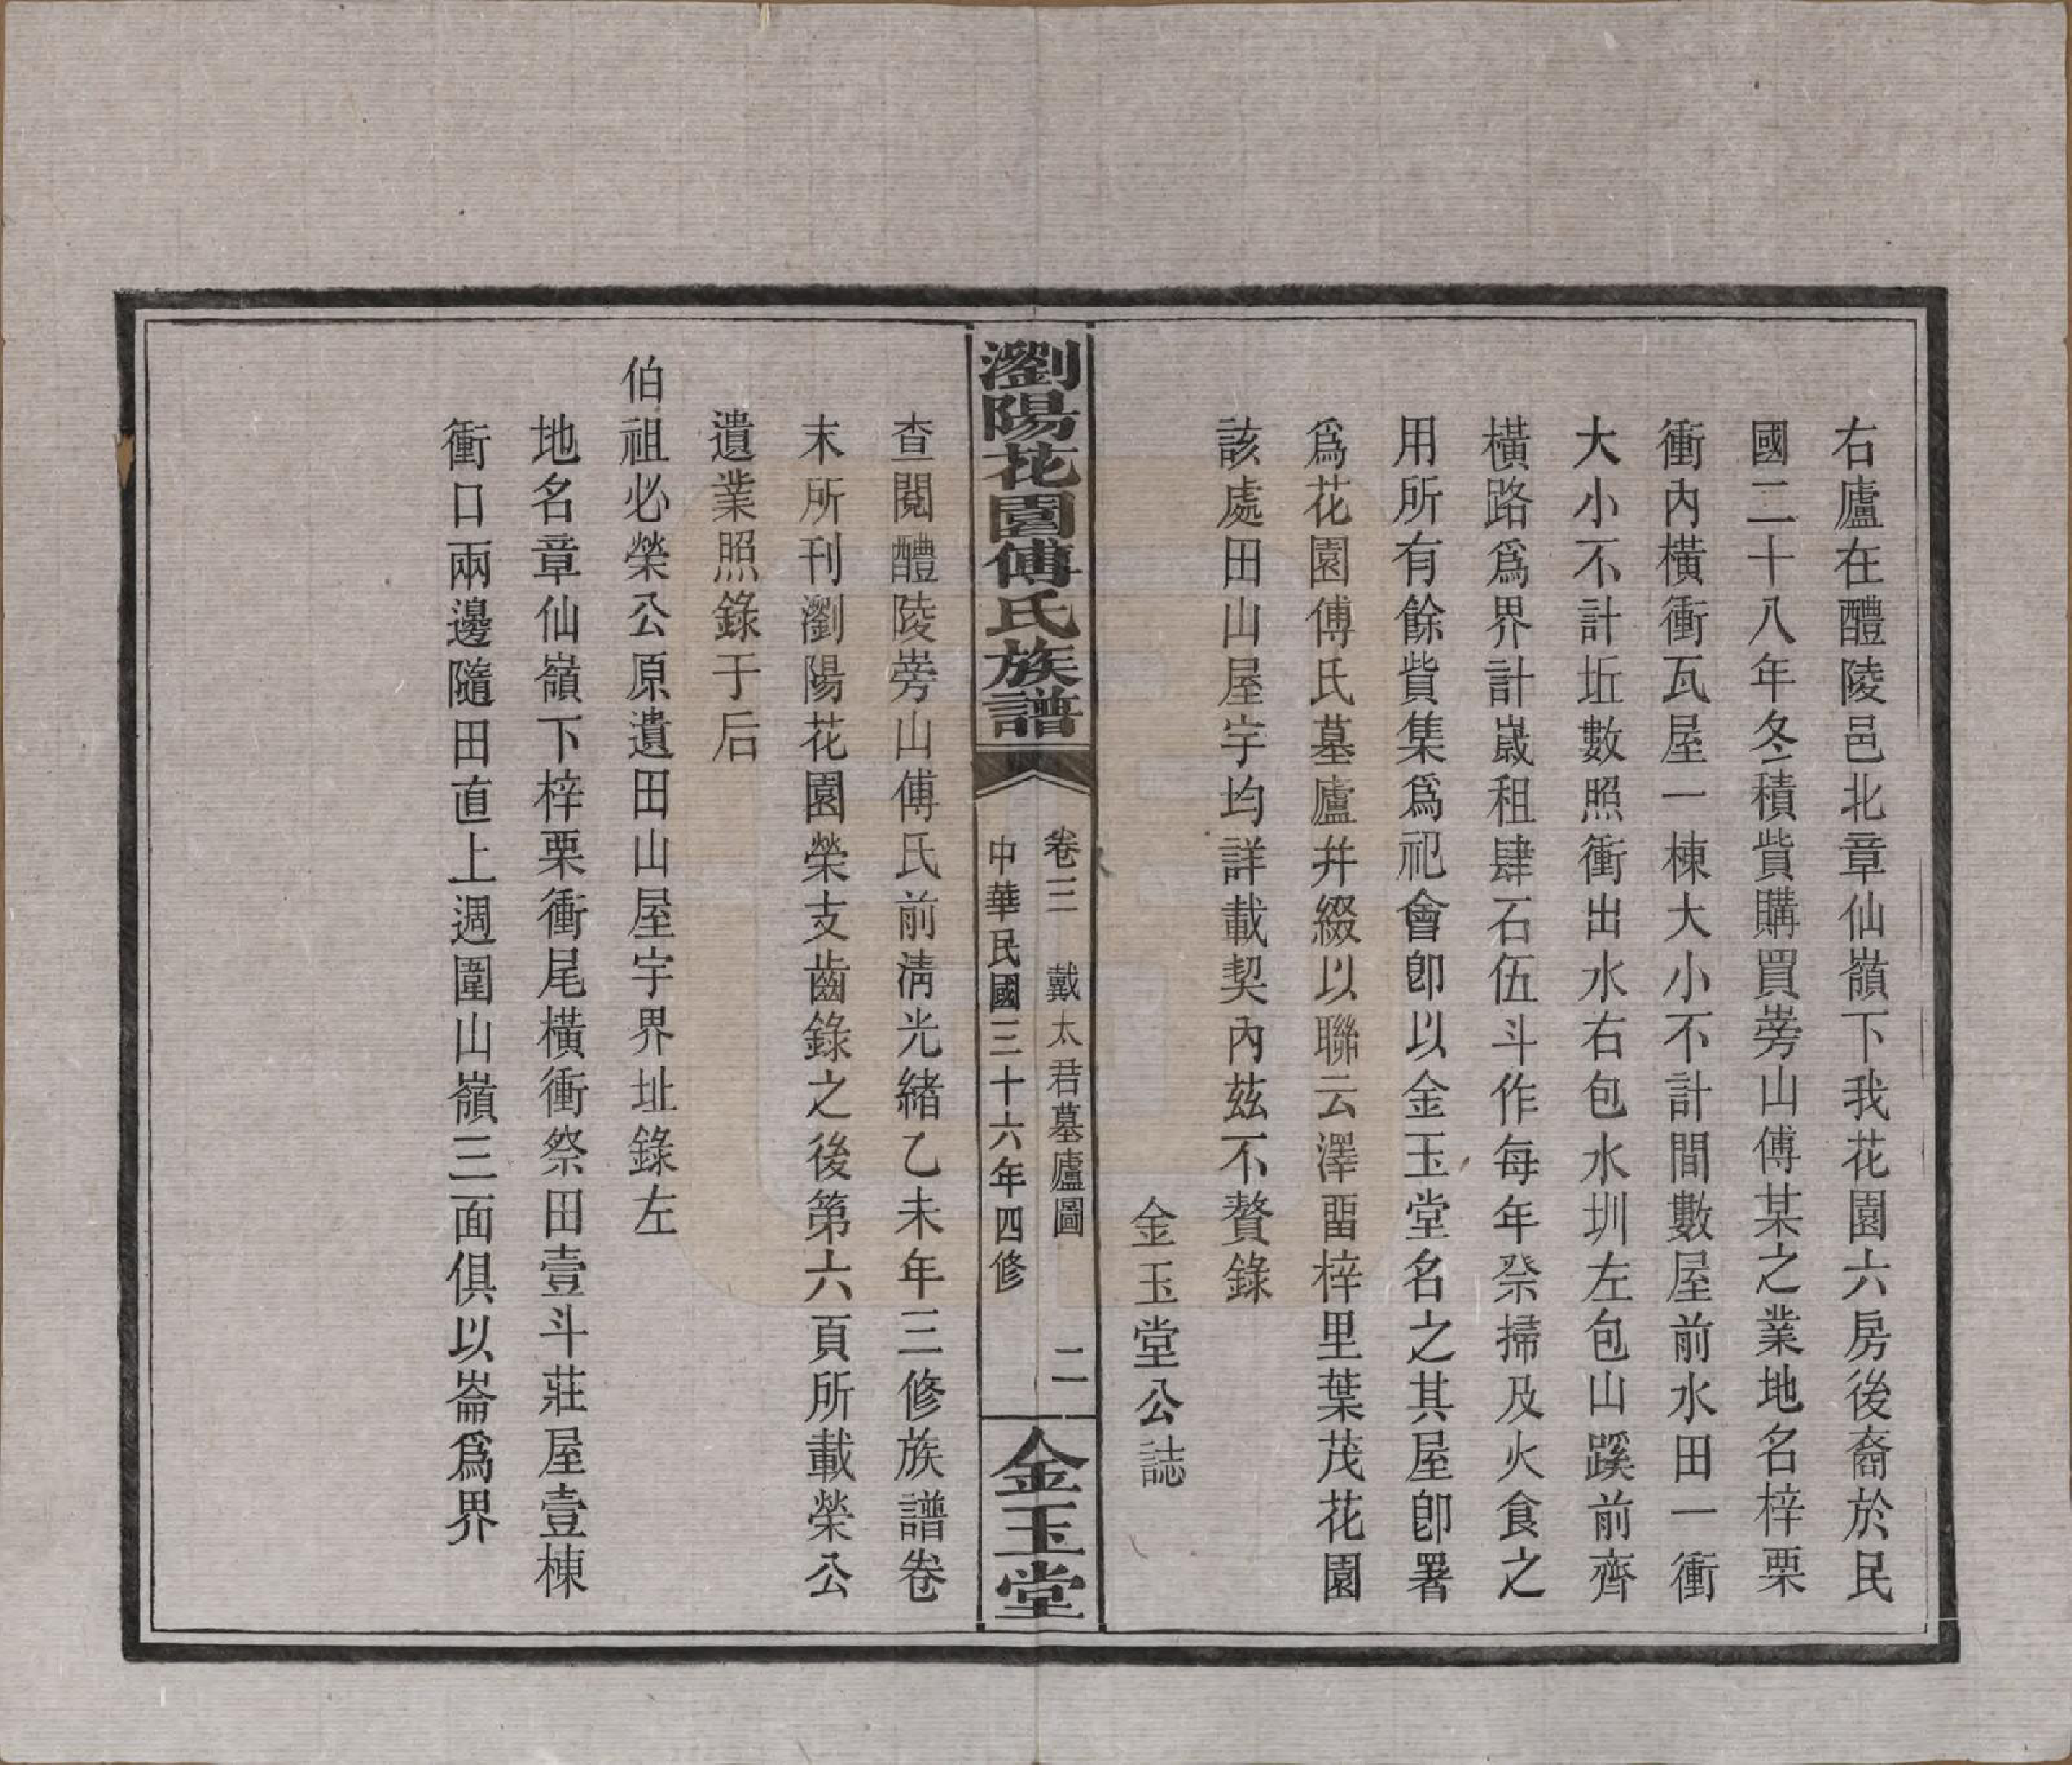 右廬在醴陵邑北章仙嶺下我花園六房後裔於民
國二十八年冬積貲購買蒡山傅某之業地名梓栗
衝內橫衝瓦屋一棟大小不計間數屋前水田一衝
大小不計坵數照衝出水右包水圳左包山蹊前齊
橫路爲界計歲租肆石伍斗作每年祭掃及火食之
用所有餘貲集爲祀會卽以金玉堂名之其屋卽署
爲花園傅氏墓廬幷綴以聯云澤畱梓里葉茂花園
該處田山屋宇均詳載契內玆不贅錄
金玉堂公誌
瀏陽花園傅氏族譜
卷三 戴太君墓廬圖 二
中華民國三十六年四修
金玉堂
查閱醴陵蒡山傅氏前清光緒乙未年三修族譜卷
末所刊瀏陽花園榮支齒錄之後第六頁所載榮公
遺業照錄于后
伯祖必榮公原遺田山屋宇界址錄左
地名章仙嶺下梓栗衝尾橫衝祭田壹斗莊屋壹棟
衝口兩邊隨田直上週圍山嶺三面俱以崙爲界